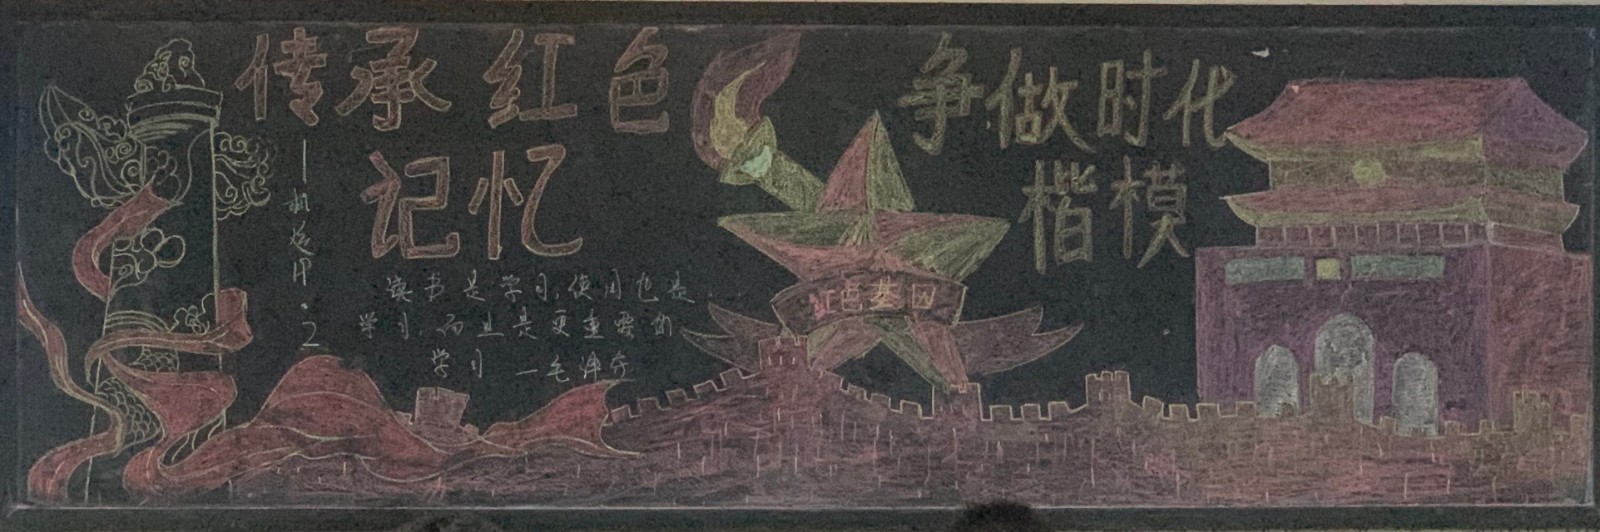 传承红色
记忆
争做时代
楷模
读书是学习,使用也是
学习,而且是更重要的
学习 —毛泽东
红色基因